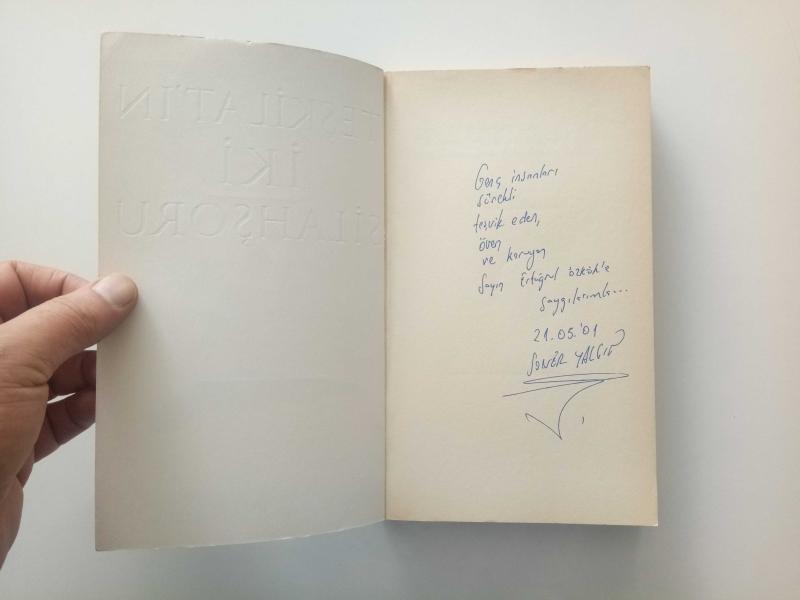 TEŞKİLAT'IN
İKİ
SİLAHŞORU
Genç insanları
sürekli
teşvik eden,
öven
ve koruyan
Sayın Ertuğrul Özkök'e
saygılarımla...
21.05.'01
SONER YALÇIN